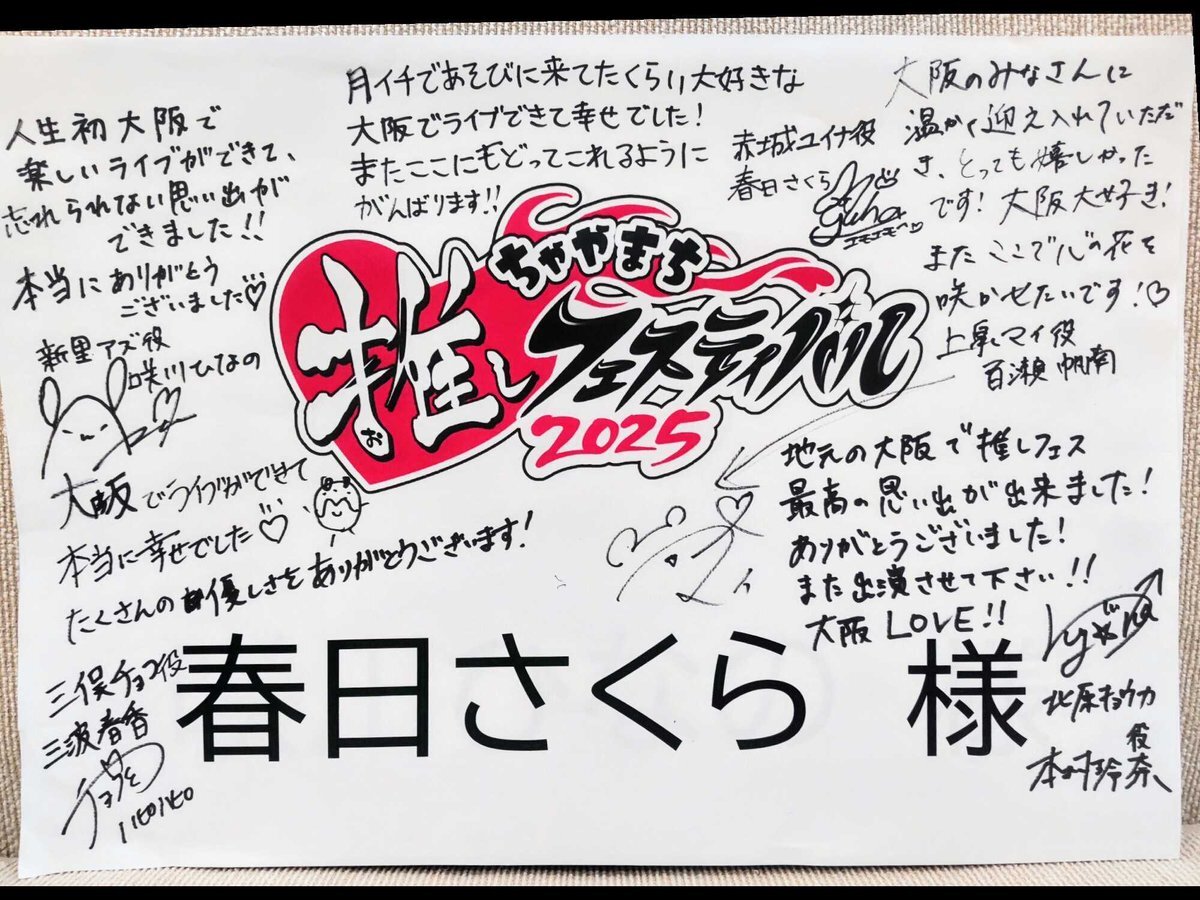 人生初大阪で
楽しいライブができて、
忘れられない思い出が
できました!!
本当にありがとう
ございました♡
新里アズ役
咲川ひなの
月イチであそびに来てたくらい大好きな
大阪でライブできて幸せでした!
またここにもどってこれるように
がんばります!!
赤城ユイナ役
春日さくら
大阪のみなさんに
温かく迎え入れていただ
き、とっても嬉しかった
です! 大阪大好き!
またここで心の花を
咲かせたいです!♡
上泉マイ役
百瀬帆南
ちゃやまち
推し
お
フェスティバル
2025
大阪でライブができて
本当に幸せでした♡
たくさんの優しさをありがとうございます!
三俣チョコ役
三波春香
地元の大阪で推しフェス
最高の思い出が出来ました!
ありがとうございました!
また出演させて下さい!!
大阪LOVE!!
北原キョウカ
役
本村玲奈
春日さくら 様